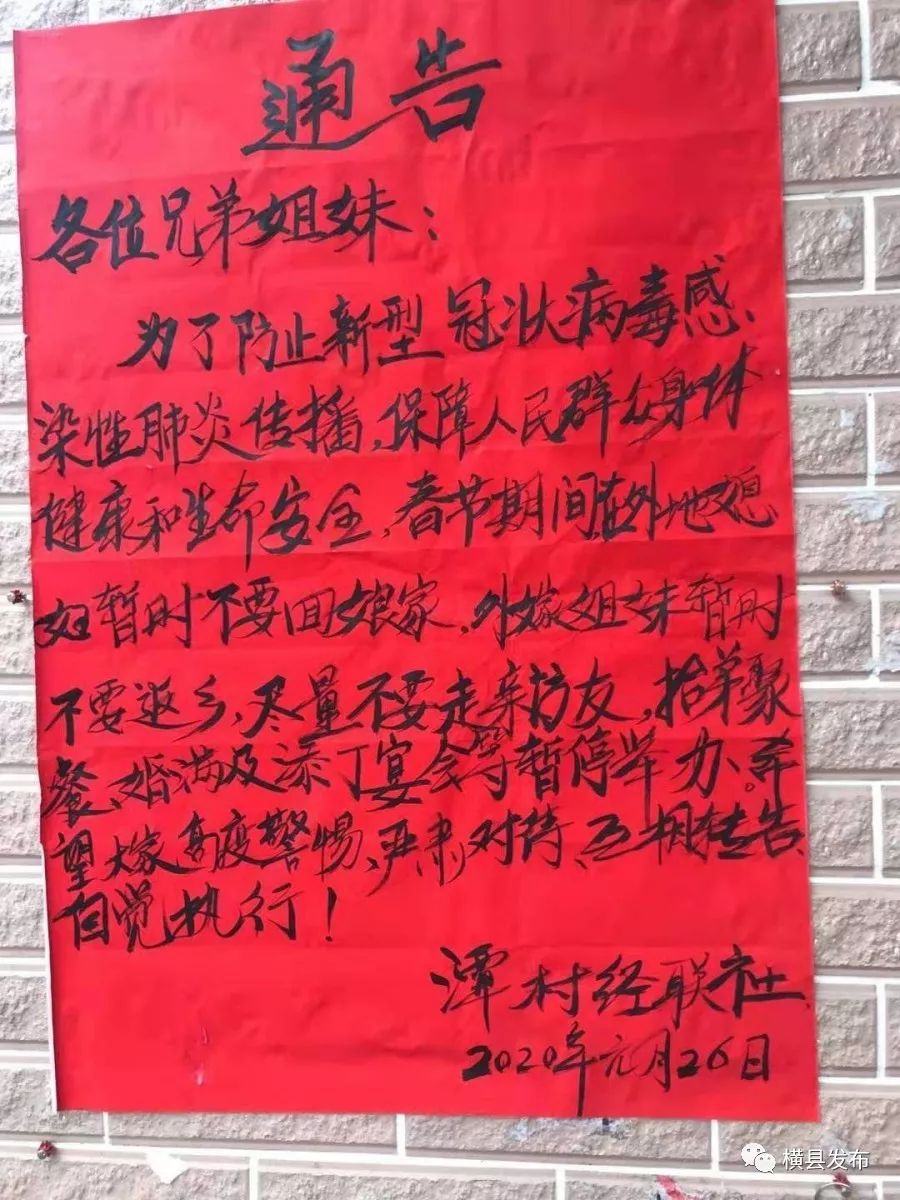 通告
各位兄弟姐妹:
为了防止新型冠状病毒感
染性肺炎传播,保障人民群众身体
健康和生命安全,春节期间,在外地媳
妇暂时不要回娘家,外嫁姐妹暂时
不要返乡,尽量不要走亲访友,拾聚
餐、婚满及添丁宴会等暂停举办。希
望大家高度警惕、严肃对待、互相转告、
自觉执行!
潭村经联社
2020年元月26日
横县发布